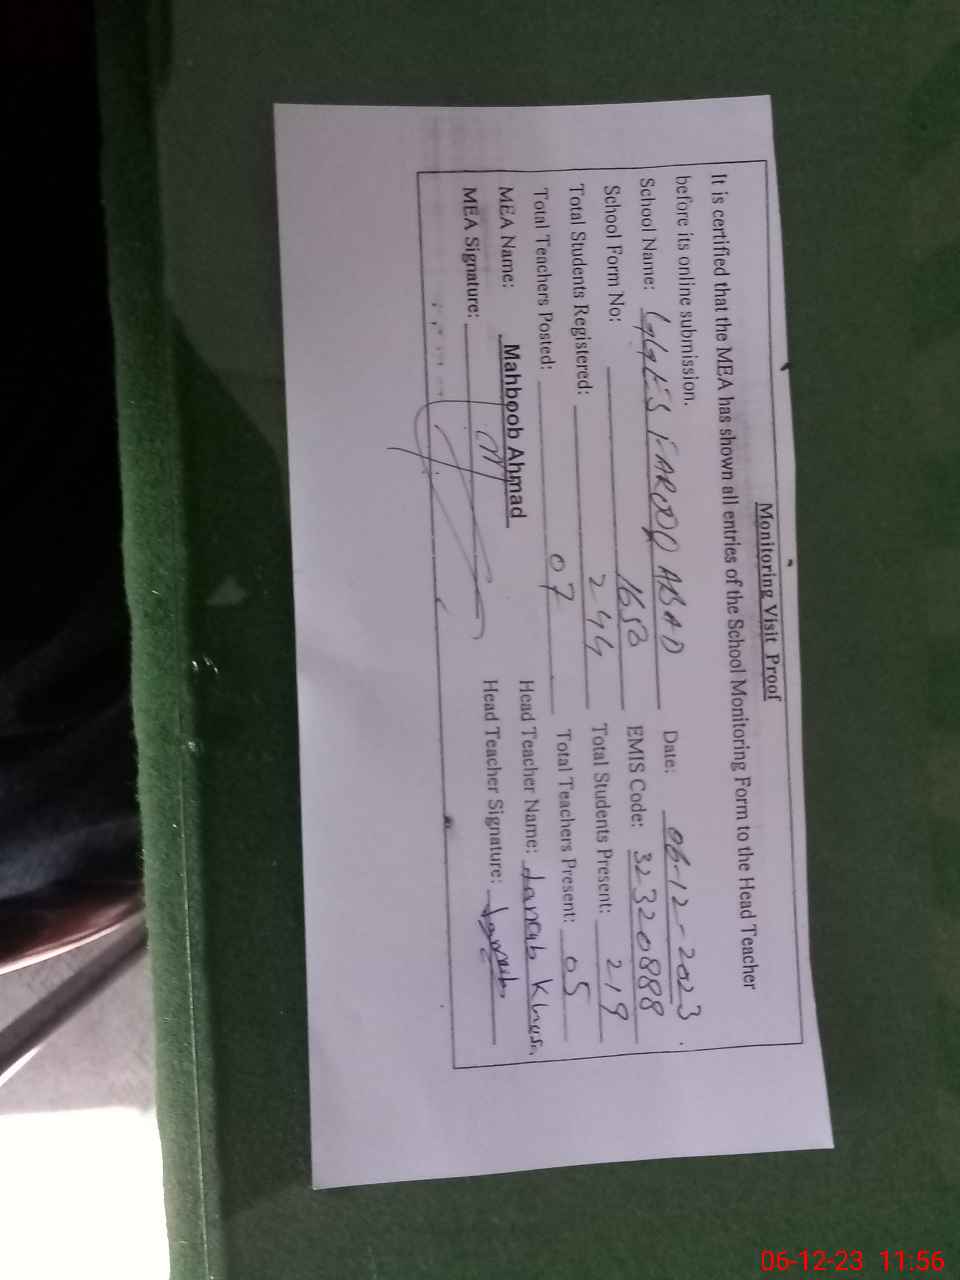 Monitoring Visit Proof
It is certified that the MEA has shown all entries of the School Monitoring Form to the Head Teacher
before its online submission.
School Name: GGES FAROOQ ABAD Date: 06-12-2023
School Form No: 1650 EMIS Code: 32320888
Total Students Registered: 244 Total Students Present: 219
Total Teachers Posted: 07 Total Teachers Present: 05
MEA Name: Mahboob Ahmad Head Teacher Name:
MEA Signature: Head Teacher Signature:
06-12-23 11:56